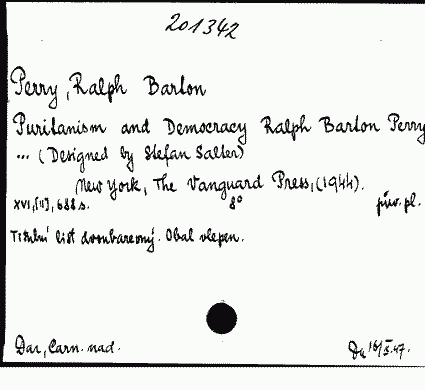 201342
Perry, Ralph Barton
Puritanism and Democracy Ralph Barton Perry
... (Designed by Stefan Salter)
New York, The Vanguard Press, (1944).
XVI, [II], 688 s. 8° pův. pl.
Titulní list dvoubarevný. Obal vlepen.
Dar, Carn. nad. 16/X.47.